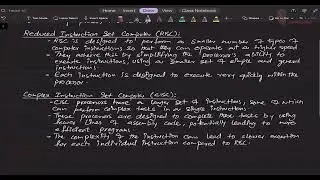 Reduced Instruction Set Computer (RISC):
- RISC is designed to perform a smaller number of types of
computer instructions so that they can operate at a higher speed
- They achieve this by simplifying the processor's ability to
execute instructions, using a smaller set of simple and general
instructions.
- Each instruction is designed to execute very quickly within the
processor.
Complex Instruction Set Computer (CISC):
- CISC processors have a larger set of instructions, some of which
can perform complex tasks in a single instruction.
- These processors are designed to complete these tasks by using
fewer lines of assembly code, potentially leading to more
efficient programs.
- The complexity of the instruction can lead to slower execution
for each individual instruction compared to RISC.